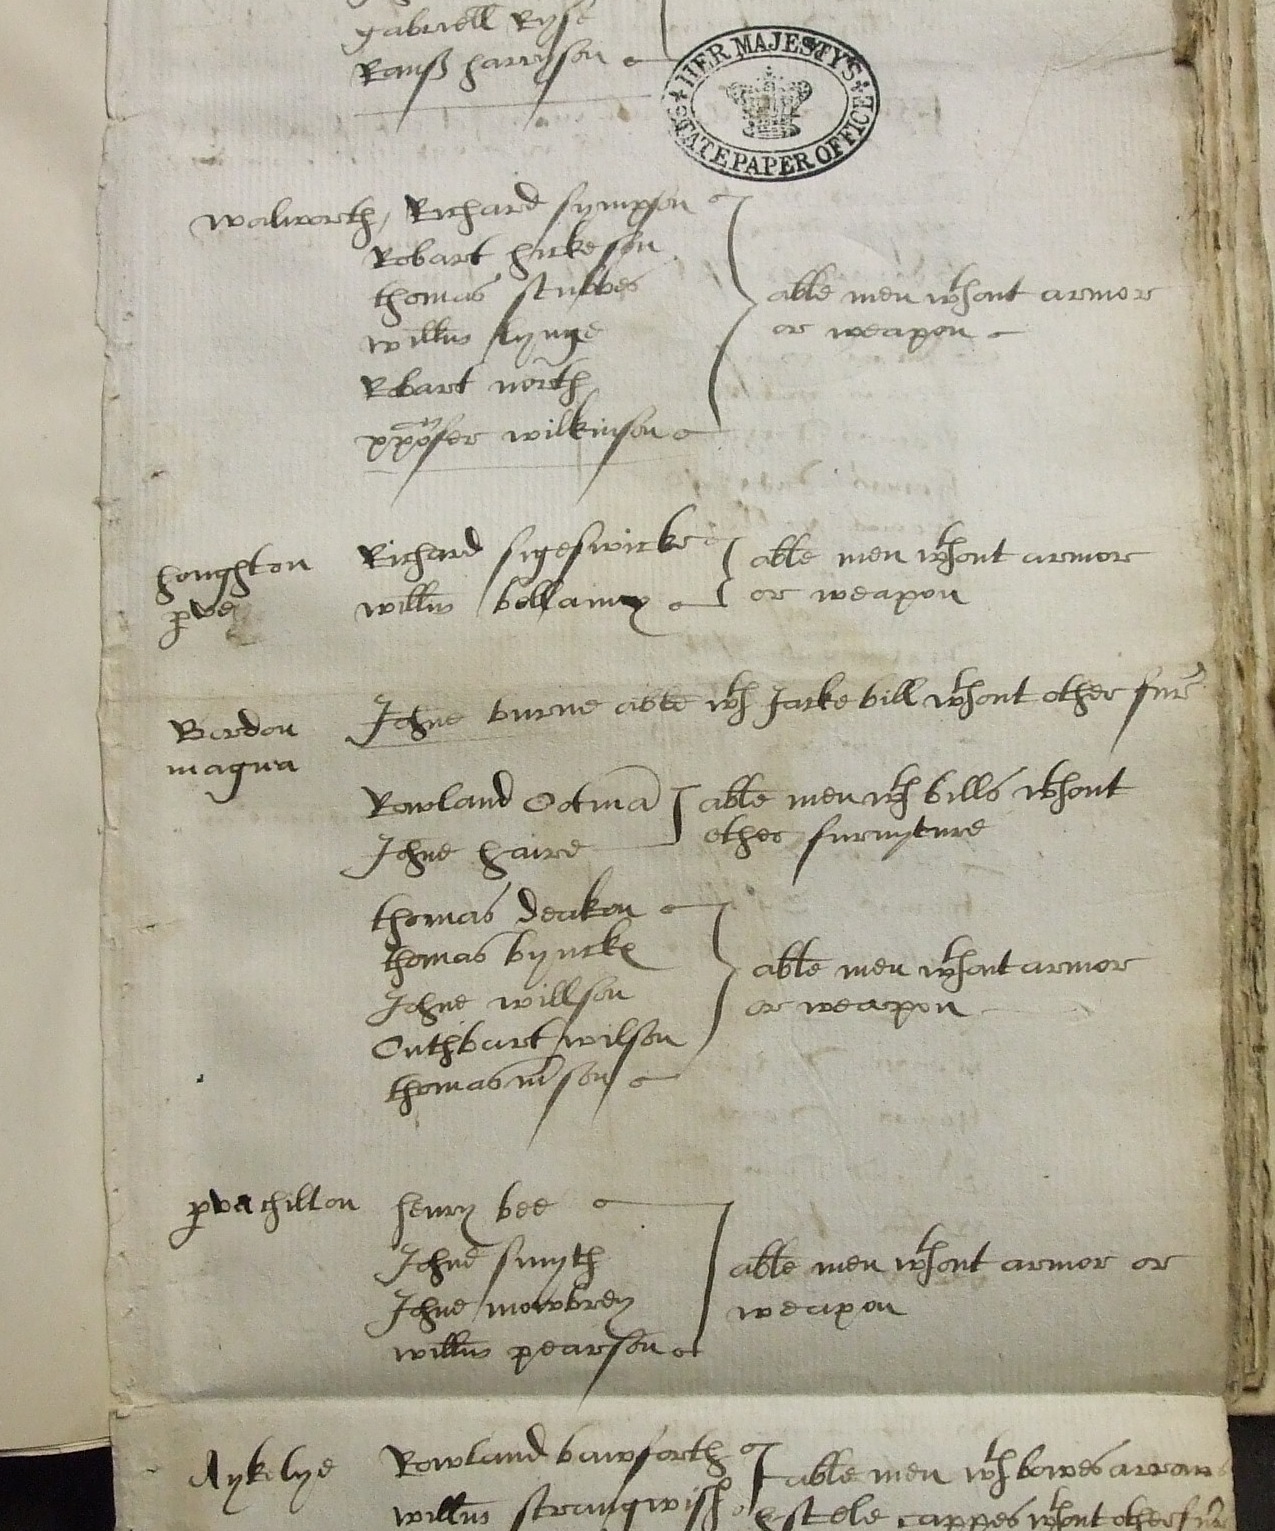 gabriell Ryse
Rauff harryson
HER MAJESTY'S STATE PAPER OFFICE
Walworth, Richard sympson
Robart hickeson
thomas stubbes
willm lynge
Robart north
xpofer wilkinson
able men wthout armor
or weapon
houghton
pva
Richard sigeswicke
willm bellamy
able men wthout armor
or weapon
Bordon
magna
Johne burne able wth Jacke bill wthout other fur
Rowland Ootma
Johne haire
able men wth bills wthout
other furnyture
thomas deakon
thomas byncke
Johne willson
Cuthbart wilson
thomas son
able men wthout armor
or weapon
pva chilton
henry bee
Johne smyth
Johne mowbrey
willm pearson
able men wthout armor or
weapon
Aykelye
Rowland bawforth
willm strangwish
able men wth bowes arrows
& stele cappes wthout other fur